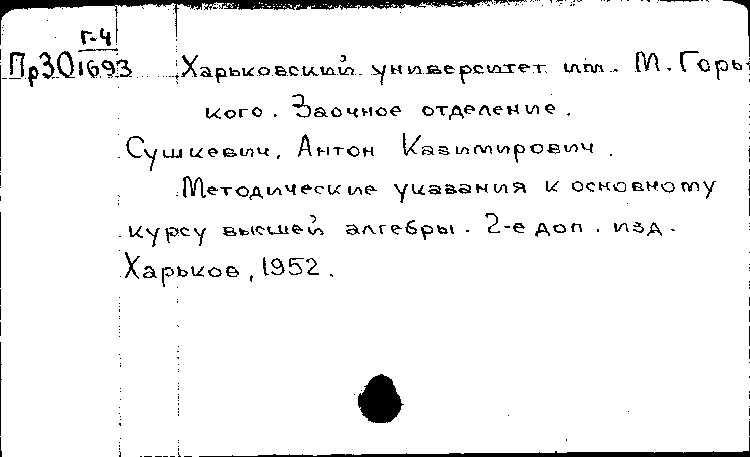 Г-4
Пр30 1693 Харьковский университет им. М. Горь-
кого. Заочное отделение.
Сушкевич, Антон Казимирович.
Методические указания к основному
курсу высшей алгебры. 2-е доп. изд.
Харьков, 1952.